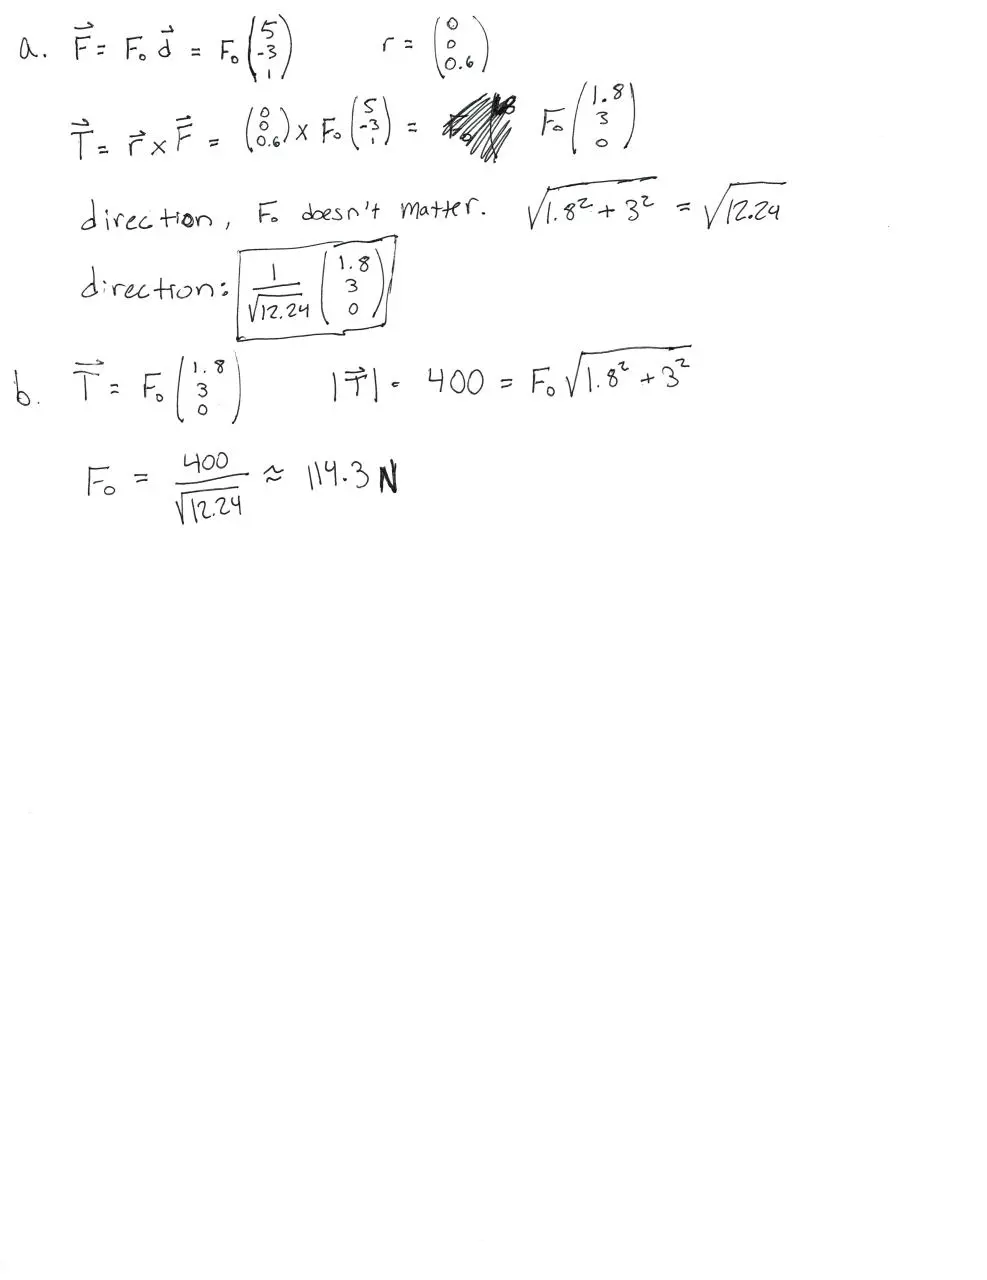 a. F⃗ = F₀ d⃗ = F₀ (5 -3 1) r = (0 0 0.6)
T⃗ = r⃗ × F⃗ = (0 0 0.6) × F₀ (5 -3 1) = F₀ (1.8 3 0)
direction, F₀ doesn't matter. √(1.8² + 3²) = √12.24
direction: 1/√12.24 (1.8 3 0)
b. T⃗ = F₀ (1.8 3 0) |T⃗| = 400 = F₀ √(1.8² + 3²)
F₀ = 400/√12.24 ≈ 114.3 N